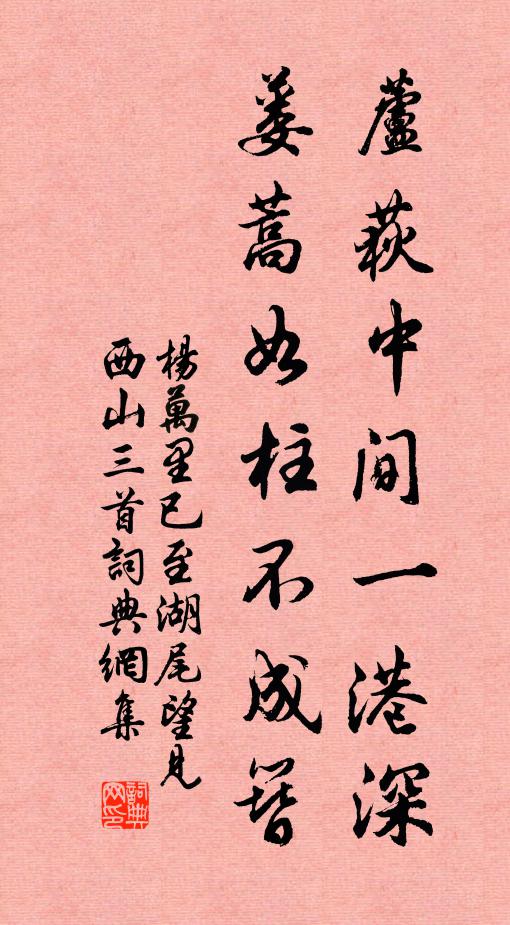 蘆荻中間一港深
蔞蒿如柱不成簪
楊萬里已至湖尾望見
西山三首詞典網集
詞典
网印